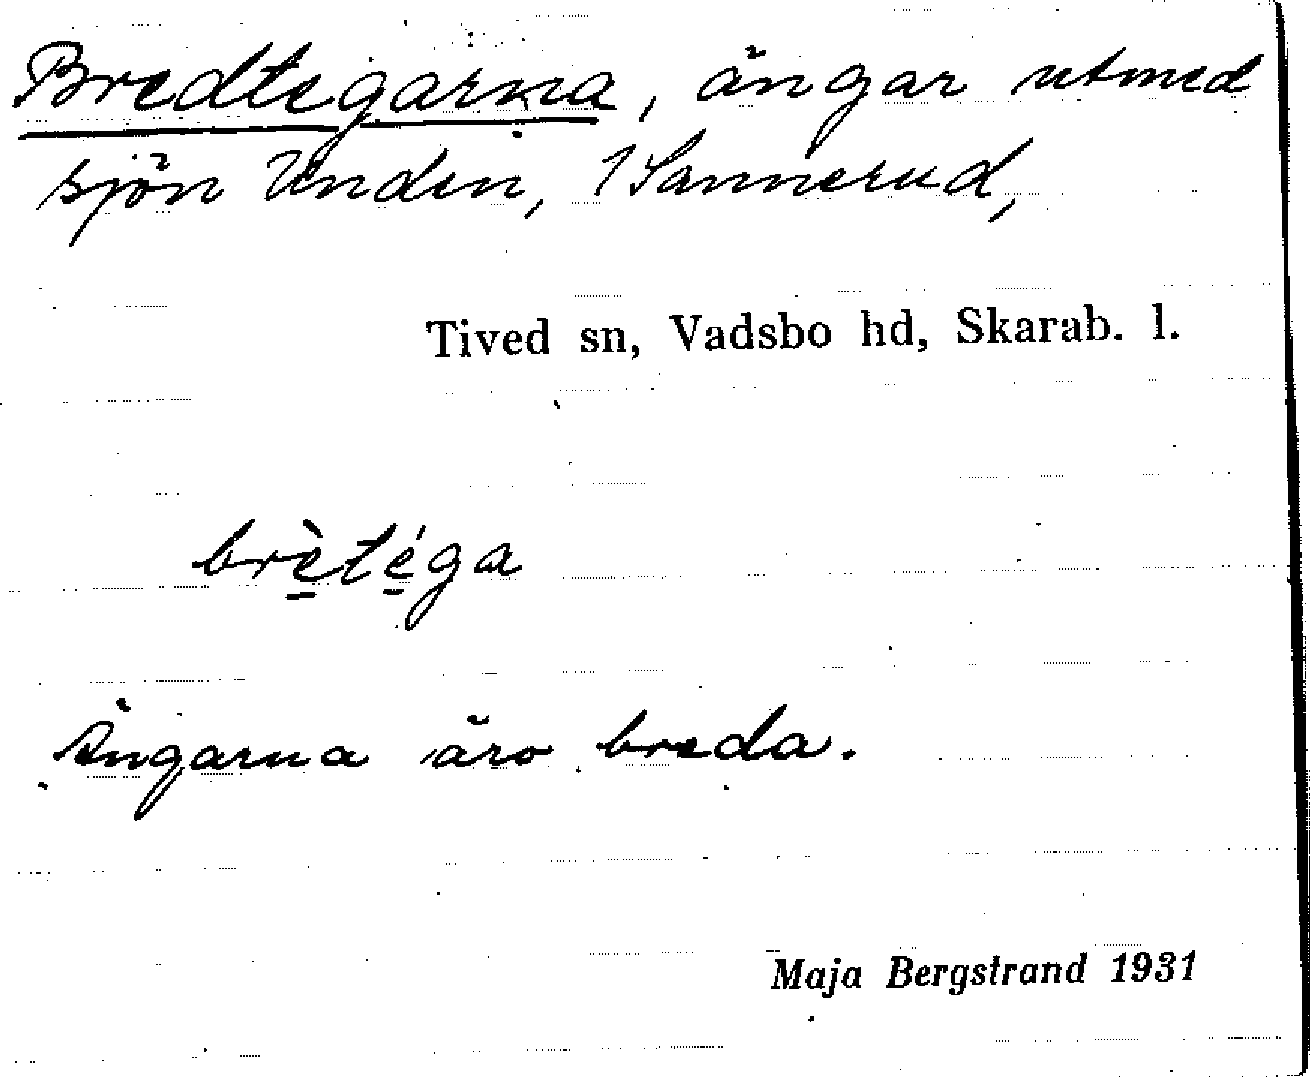 Bredtegarna, ängar utmed
sjön Unden, 1 Sannerud,
Tived sn, Vadsbo hd, Skarab. l.
brè̱té̱ga
Ängarna äro breda.
Maja Bergstrand 1931